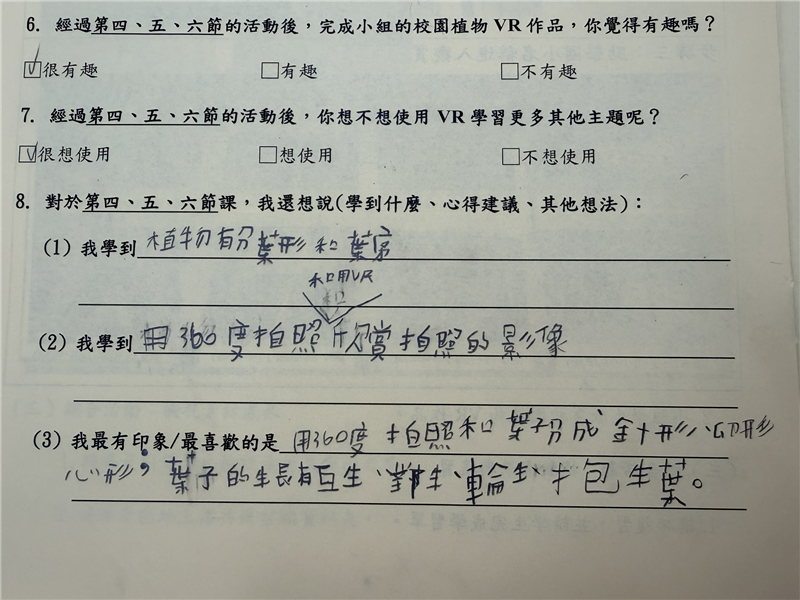 6. 經過第四、五、六節的活動後，完成小組的校園植物 VR 作品，你覺得有趣嗎？
☑很有趣 □有趣 □不有趣
7. 經過第四、五、六節的活動後，你想不想使用 VR 學習更多其他主題呢？
☑很想使用 □想使用 □不想使用
8. 對於第四、五、六節課，我還想說(學到什麼、心得建議、其他想法)：
(1) 我學到 植物有分葉形和葉序
和用VR
(2) 我學到 用360度拍照欣賞拍照的影像
(3) 我最有印象/最喜歡的是 用360度拍照和葉子分成針形、卵形
心形；葉子的生長有互生、對生、輪生、包生葉。